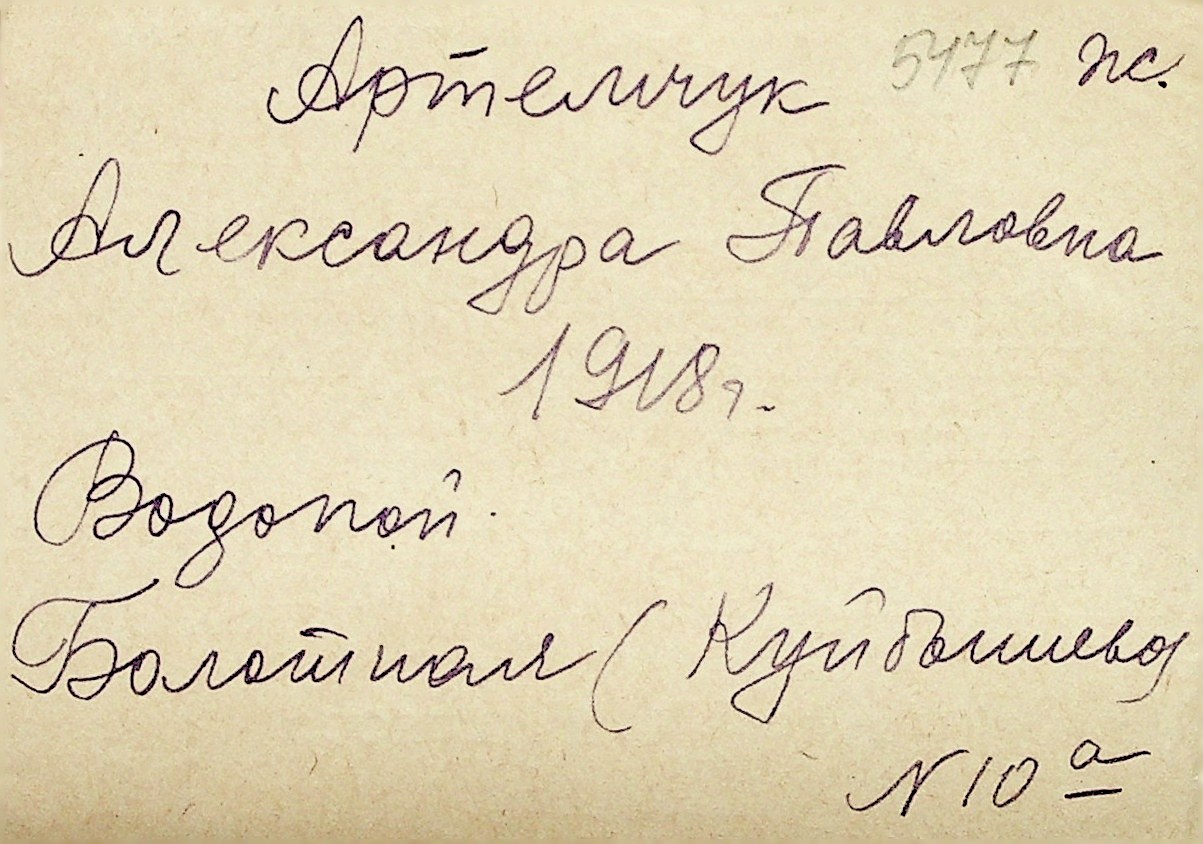 Артемчук 5477 ж.
Александра Павловна
1918 г.
Водопой.
Болотная (Куйбышева)
N 10 а